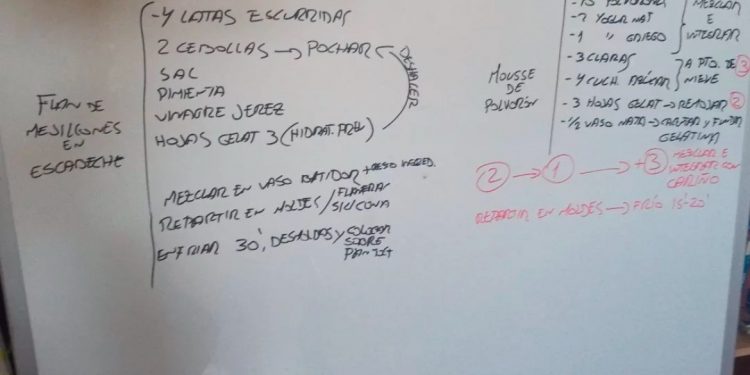 FLAN DE
MEJILLONES
EN
ESCABECHE
-4 LATAS ESCURRIDAS
2 CEBOLLAS → POCHAR
SAL
PIMIENTA
VINAGRE JEREZ
HOJAS GELAT 3 (HIDRAT. PREV)
DESHACER
MEZCLAR EN VASO BATIDOR + RESTO INGRED.
REPARTIR EN MOLDES / FLANERAS
SILICONA
ENFRIAR 30', DESMOLDAR Y COLOCAR
SOBRE
PAN TXT
MOUSSE
DE
POLVORÓN
-15 POLVORONES
-2 YOGUR NAT
-1 " GRIEGO
MEZCLAR
E
INTEGRAR
-3 CLARAS
-4 CUCH. AZÚCAR
A PTO. DE 3
NIEVE
-3 HOJAS GELAT → REMOJAR 2
-1/2 VASO NATA → CALENTAR Y FUNDIR
GELATINA
2 → 1 → +3 MEZCLAR E
INTEGRAR CON
CARIÑO
REPARTIR EN MOLDES → FRÍO 15'-20'